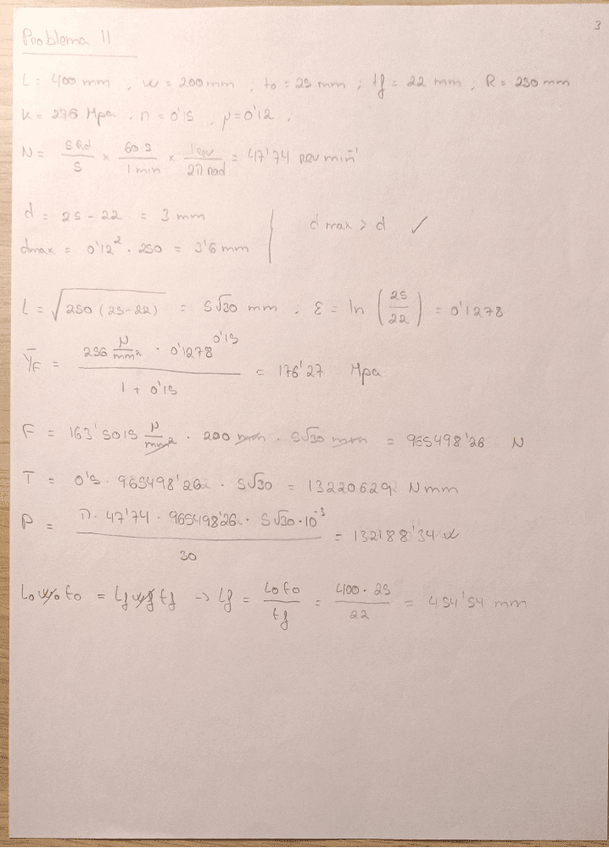 3
Problema 11
L = 400 mm , w = 200 mm ; to = 25 mm ; tf = 22 mm ; R = 250 mm
K = 276 Mpa , n = 0'15 , μ = 0'12 ,
N = 5 Rd / s × 60 s / 1 min × 1 rev / 2π rad = 47'74 rev min⁻¹
d = 25 - 22 = 3 mm
dmax > d ✓
dmax = 0'12² · 250 = 3'6 mm
L = √250 (25-22) = 5√30 mm , ε = ln (25/22) = 0'1278
ȲF = 236 N/mm² · 0'1278^0'15 / 1 + 0'15 = 176'27 Mpa
F = 163'5015 N/mm² · 200 mm · 5√30 mm = 965498'26 N
T = 0'5 · 965498'26 · 5√30 = 13220629 N mm
P = π · 47'74 · 965498'26 · 5√30 · 10⁻³ / 30 = 132188'34 w
Lo wo to = Lf wf tf -> Lf = Lo to / tf = 400 · 25 / 22 = 454'54 mm